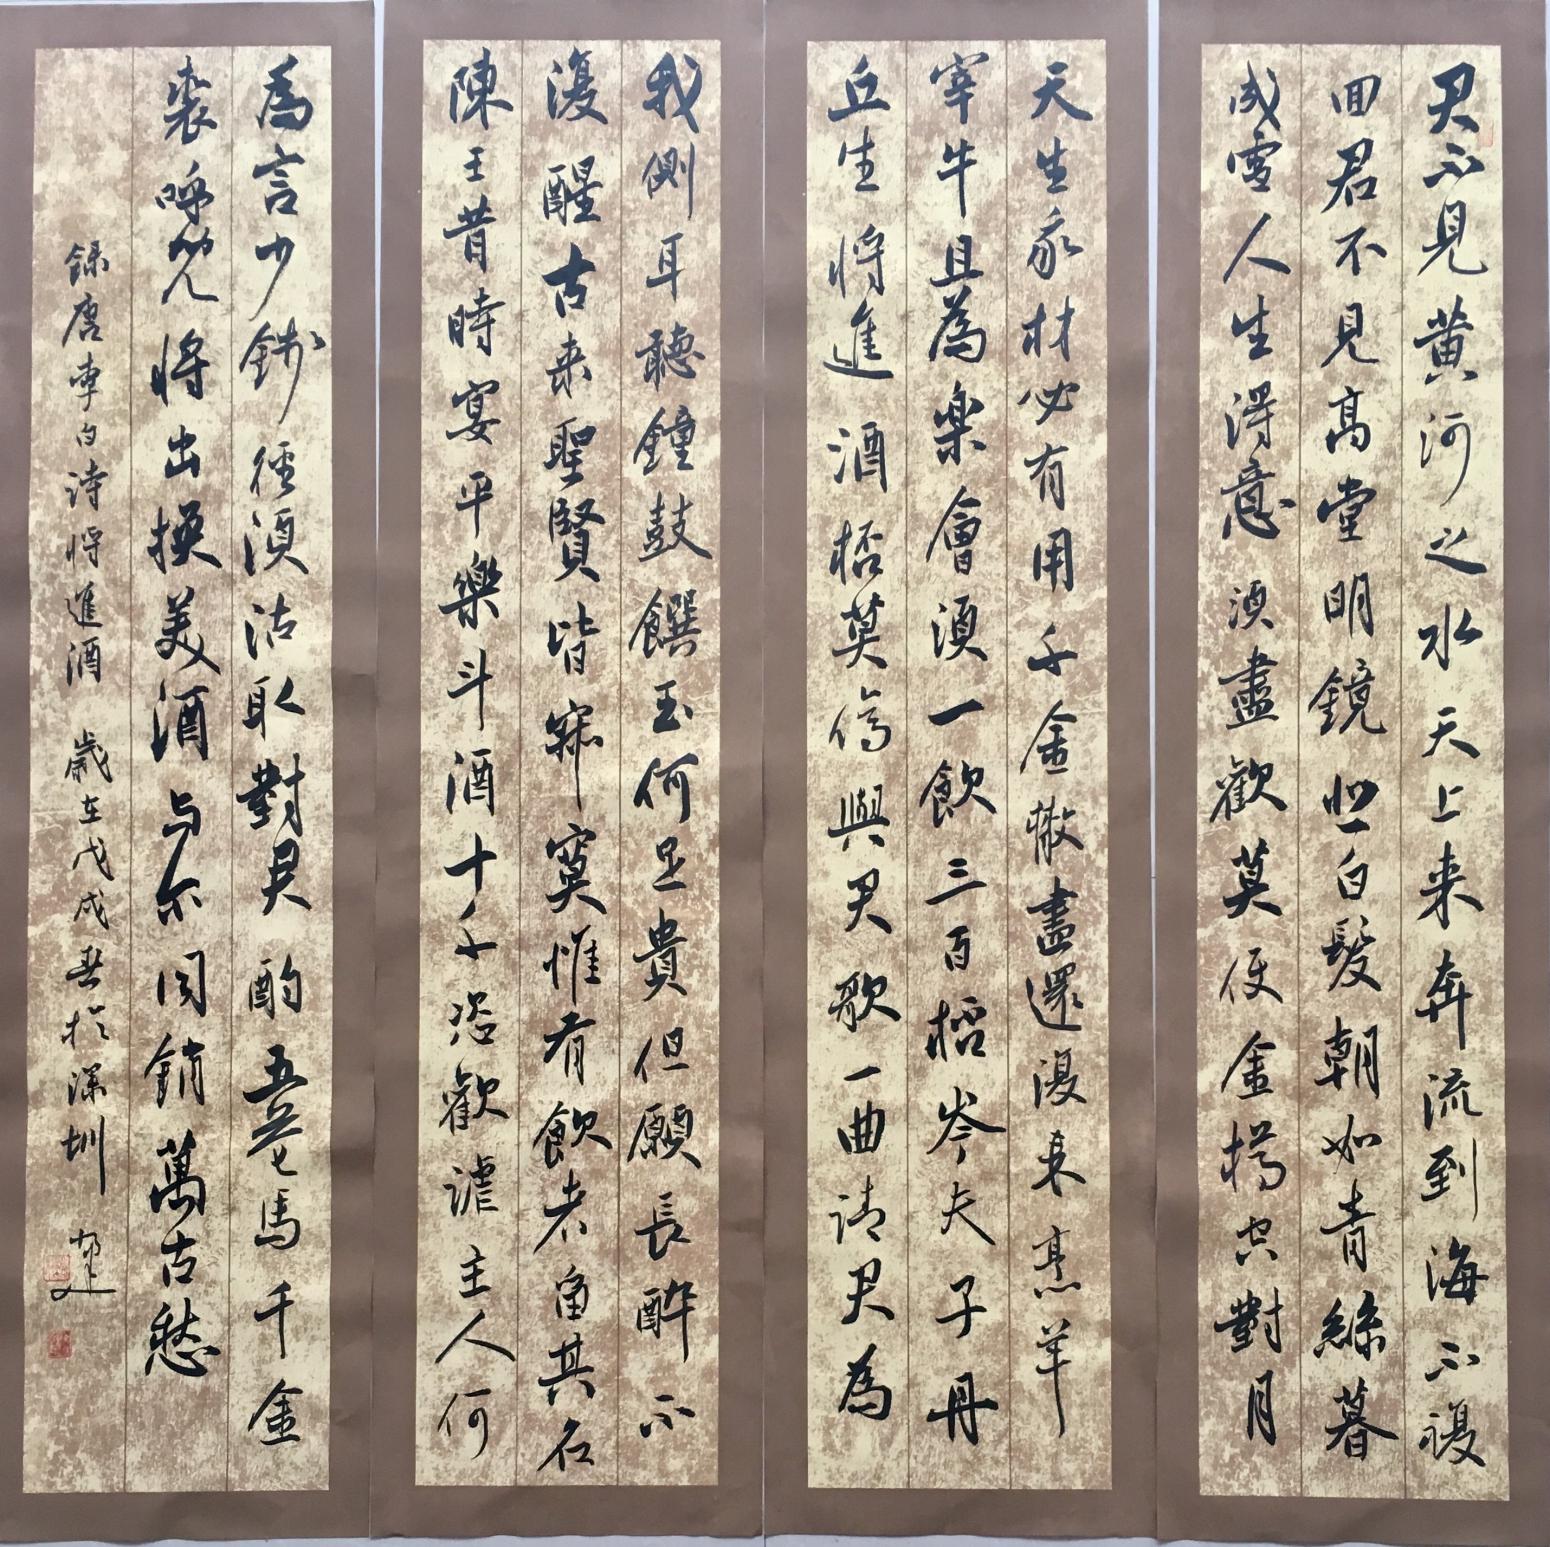 君不見黄河之水天上来奔流到海不復
回君不見高堂明鏡悲白髮朝如青絲暮
成雪人生得意須盡歡莫使金樽空對月
天生我材必有用千金散盡還復来烹羊
宰牛且為楽會須一飲三百桮岑夫子丹
丘生將進酒桮莫停與君歌一曲請君為
我側耳聽鐘鼓饌玉何足貴但願長醉不
復醒古来聖賢皆寂寞惟有飲者留其名
陳王昔時宴平樂斗酒十千恣歡謔主人何
為言少錢徑須沽取對君酌五花馬千金
裘呼兒將出換美酒与尔同銷萬古愁
録唐李白詩將進酒 歲在戊戌春於深圳